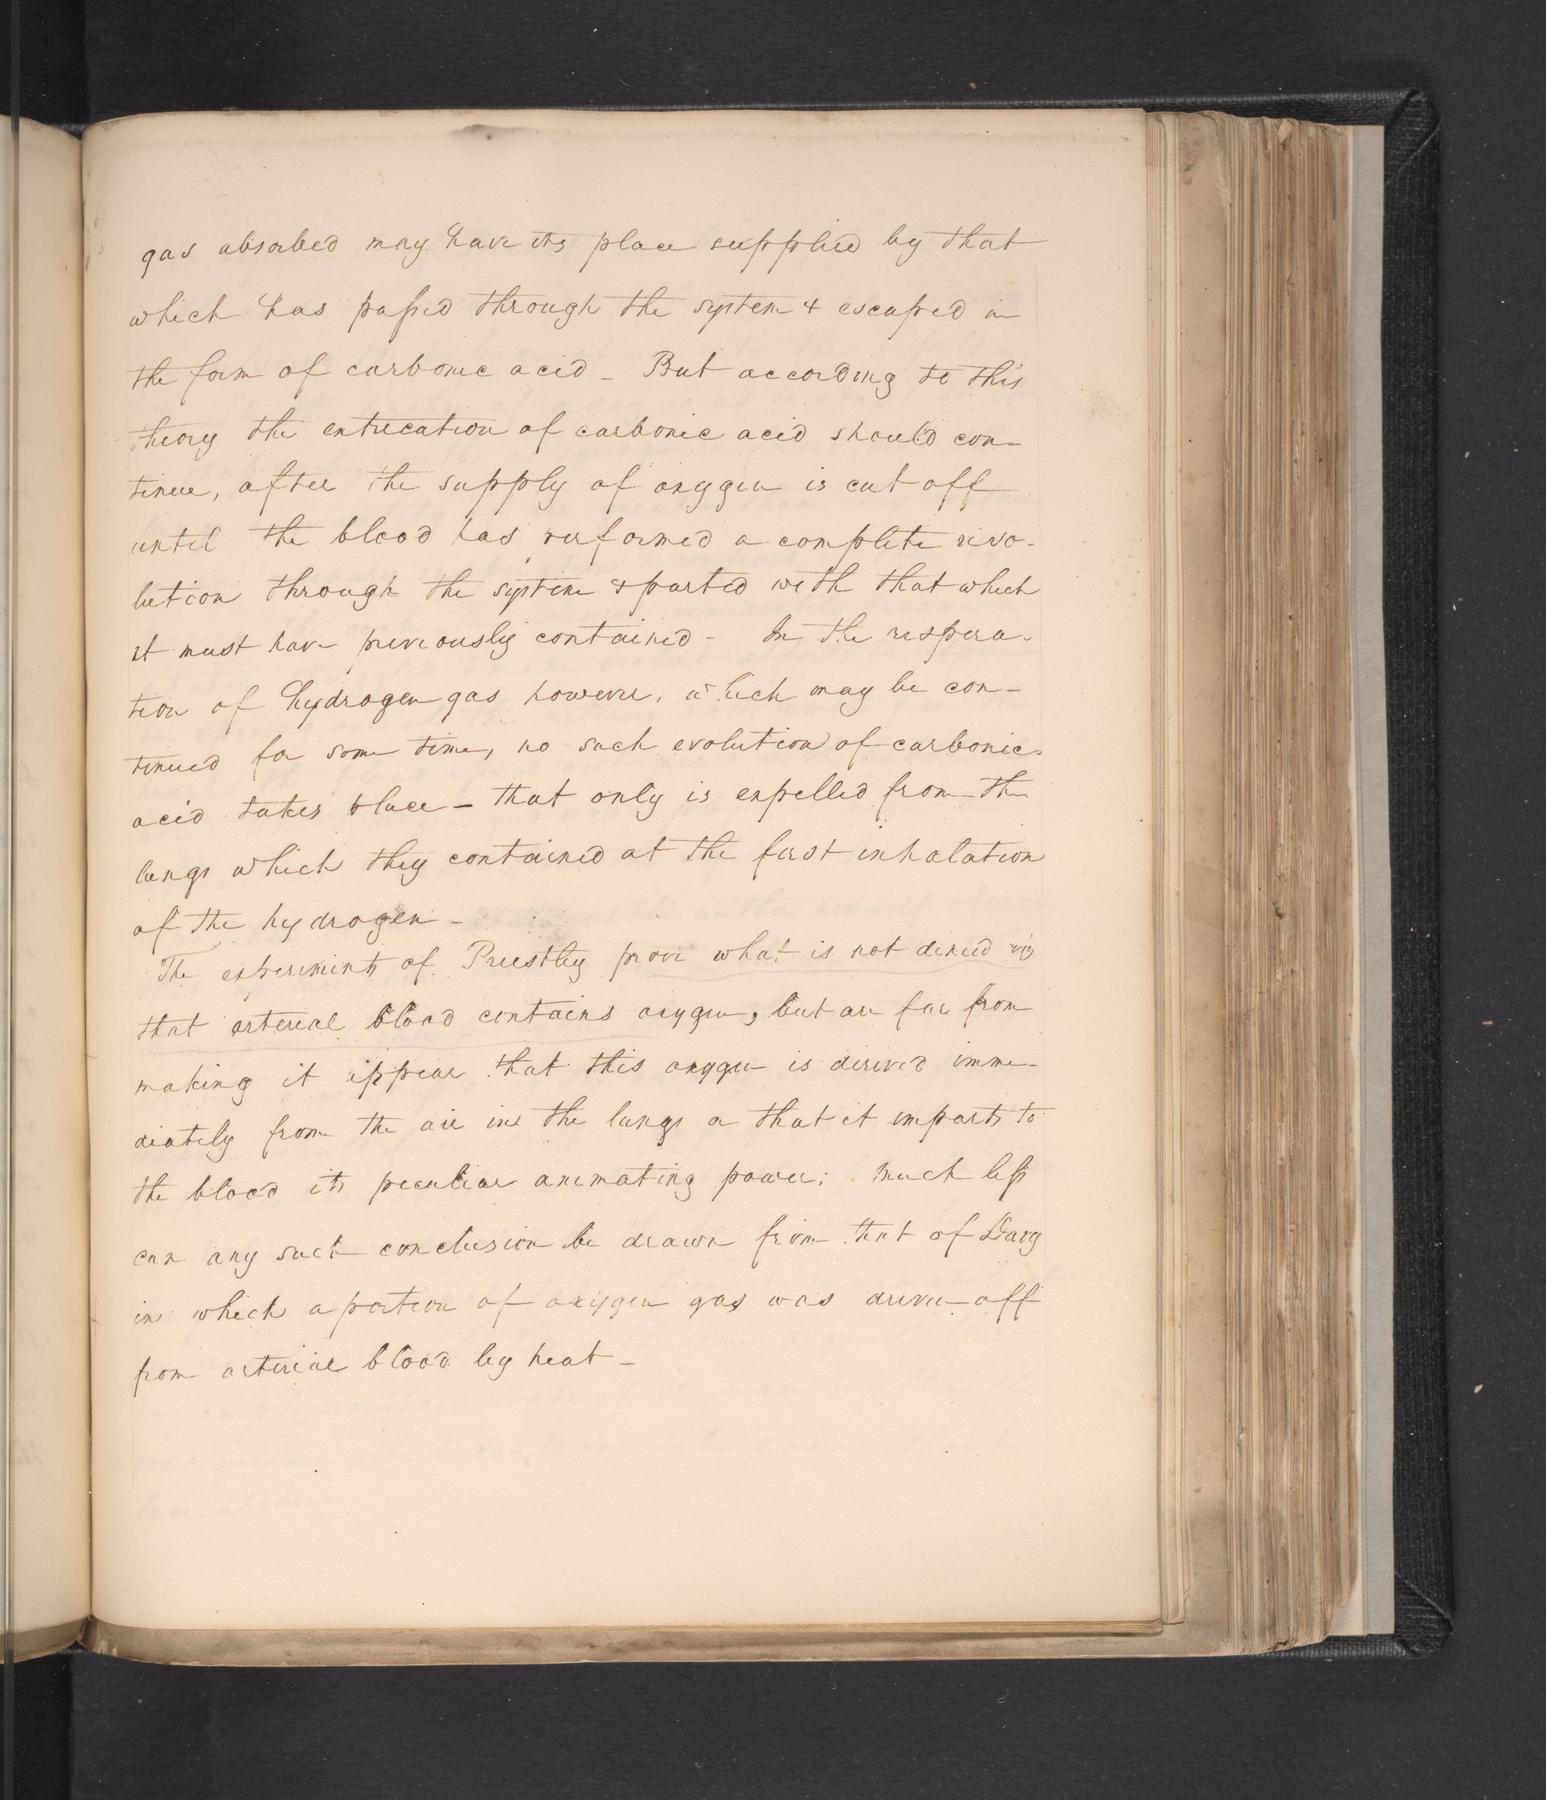 gas absorbed may have its place supplied by that
which has passed through the system & escaped in
the form of carbonic acid - But according to this
theory the extrication of carbonic acid should con-
tinue, after the supply of oxygen is cut off
until the blood has performed a complete revo-
lution through the system & parted with that which
it must have previously contained - In the respira-
tion of hydrogen gas however, which may be con-
tinued for some time, no such evolution of carbonic
acid takes place - that only is expelled from the
lungs which they contained at the first inhalation
of the hydrogen -
The experiments of Priestley prove what is not denied viz
that arterial blood contains oxygen, but are far from
making it appear that this oxygen is derived imme-
diately from the air in the lungs or that it imparts to
the blood its peculiar animating power; much less
can any such conclusion be drawn from that of Davy
in which a portion of oxygen gas was driven off
from arterial blood by heat -